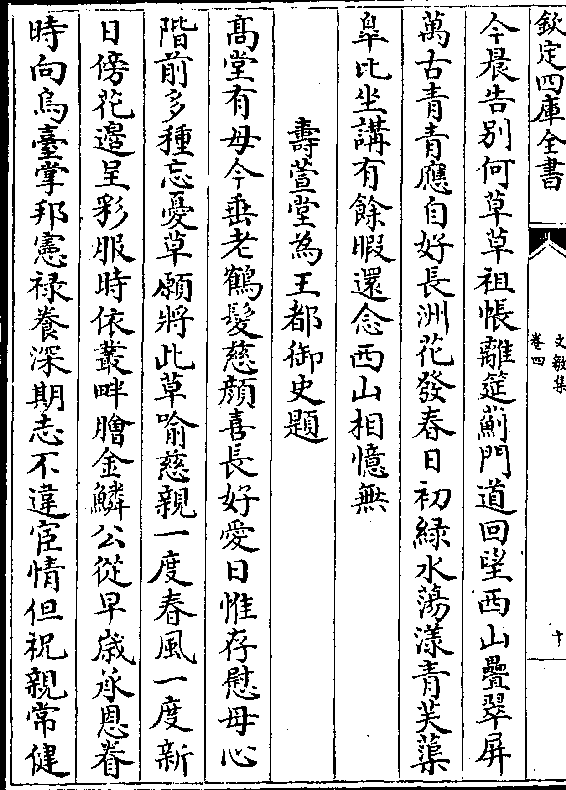 欽定四庫全書
文敏集
卷四
十
今晨告别何草草祖帳離筵薊門道回望西山疊翠屏
萬古青青應自好長洲花發春日初緑水蕩漾青芙蕖
臯比坐講有餘暇還念西山相憶無
壽萱堂為王都御史題
髙堂有母今垂老鶴髮慈顔喜長好愛日惟存慰母心
階前多種忘憂草願將此草喻慈親一度春風一度新
日傍花邉呈彩服時依叢畔膾金鱗公從早歳承恩眷
時向烏臺掌邦憲禄養深期志不違宦情但祝親常健